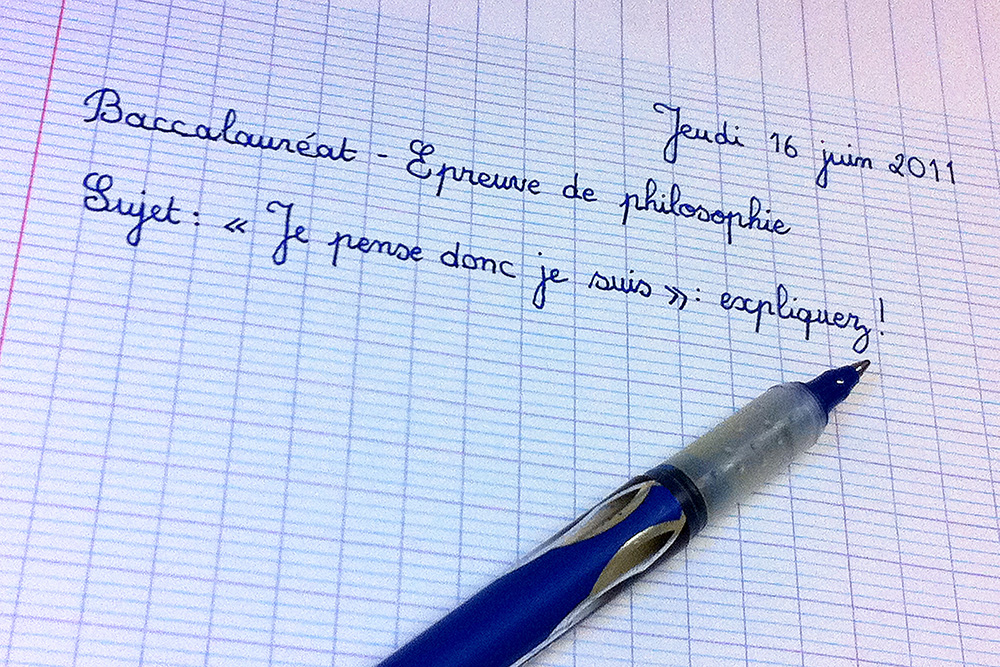 Jeudi 16 juin 2011
Baccalauréat - Epreuve de philosophie
Sujet : « Je pense donc je suis » : expliquez !